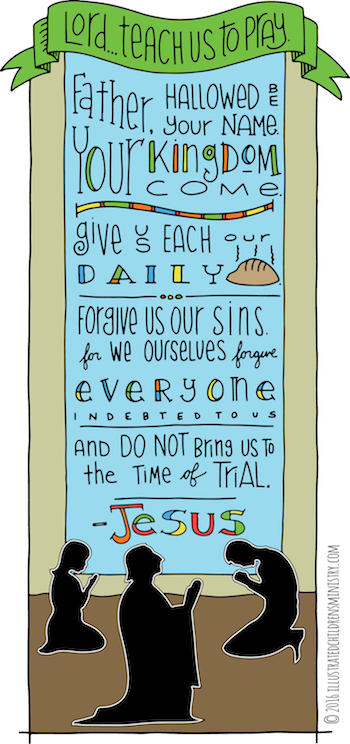 Lord... teach us to pray.
Father, HALLOWED BE
your NAME.
Your Kingdom
COME.
give us EACH our
DAILY
Forgive us our sins.
for we ourselves forgive
everyone
INDEBTED TO US
AND DO NOT Bring us To
the Time of TriAL.
-Jesus
© 2016 ILLUSTRATEDCHILDRENSMINISTRY.COM